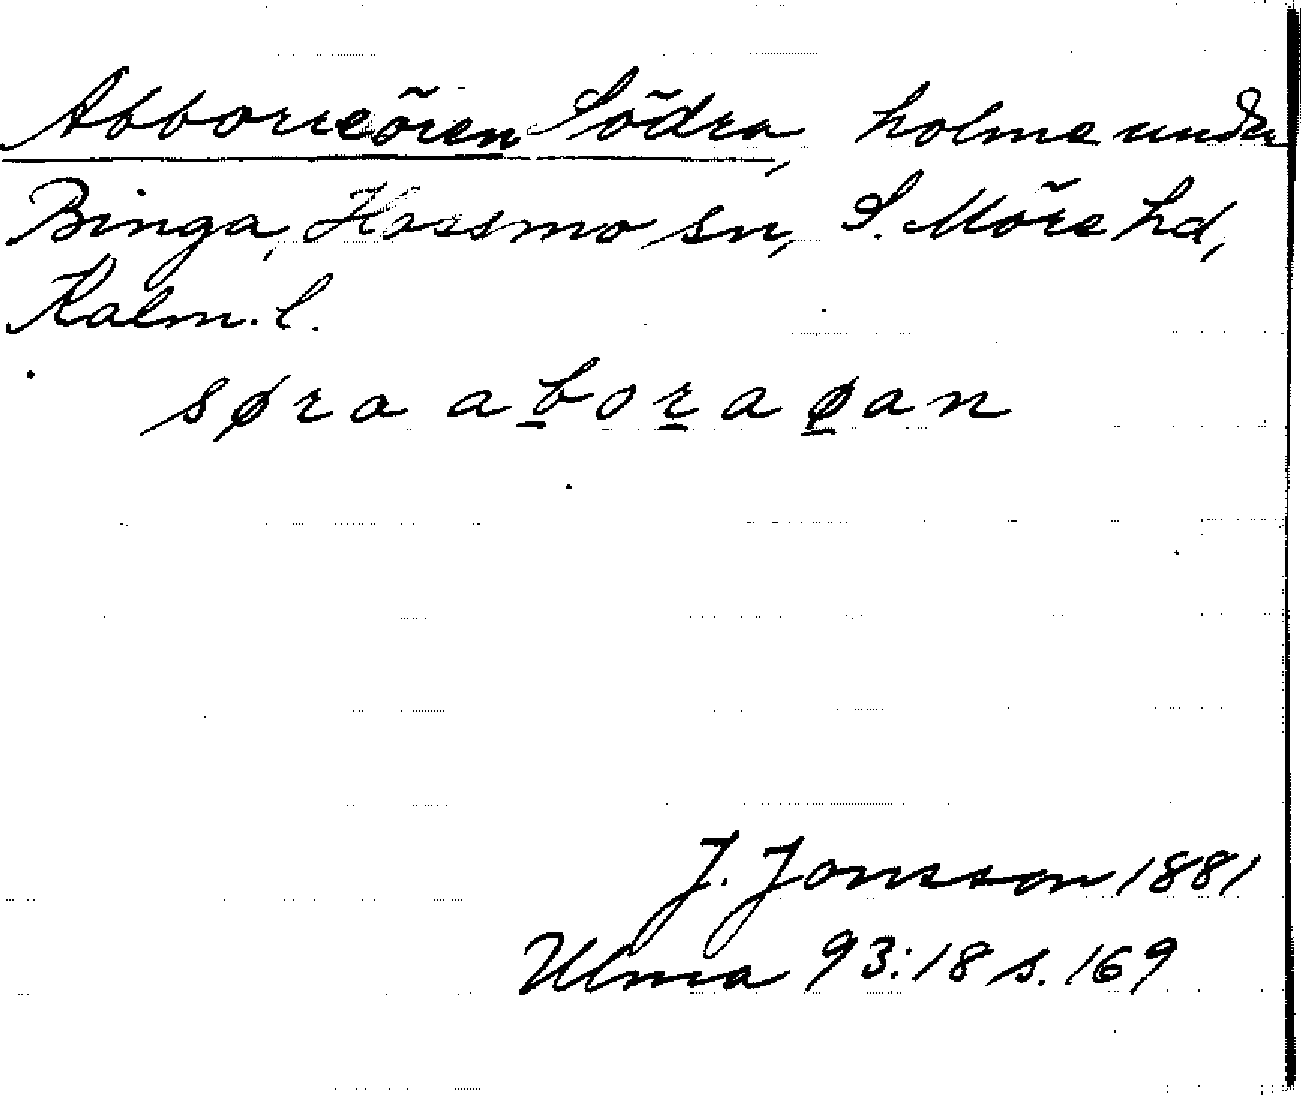 Abborreören Södra, holme under
Binga, Hossmo sn, S. Möre hd,
Kalm. l.
søra aboraøan
J. Jonsson 1881
Ulma 93:18 s. 169